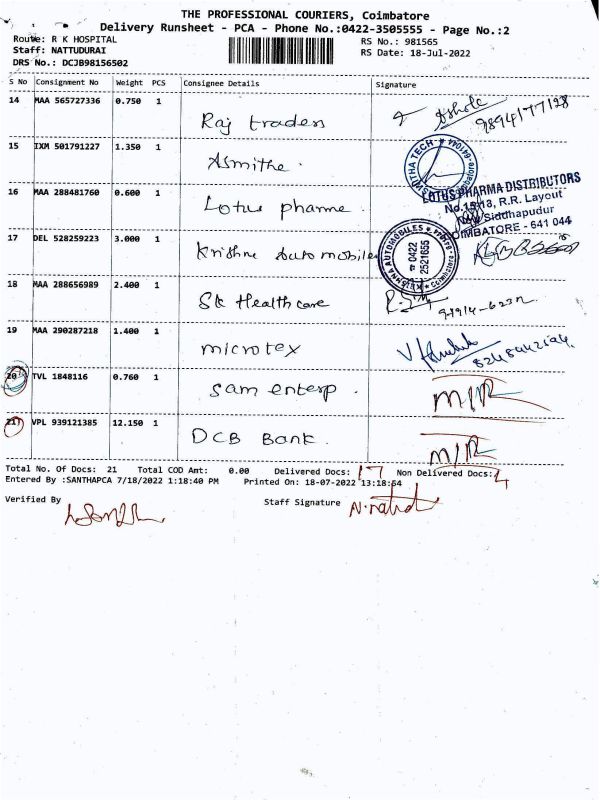 THE PROFESSIONAL COURIERS, Coimbatore
Delivery Runsheet - PCA - Phone No.:0422-3505555 - Page No.:2
Route: R K HOSPITAL
RS No.: 981565
Staff: NATTUDURAI
RS Date: 18-Jul-2022
DRS No.: DCJB98156502
S No Consignment No Weight PCS Consignee Details Signature
14 MAA 565727336 0.750 1 Raj traders Ashok 9894177128
15 IXM 501791227 1.350 1 Asmithe.
16 MAA 288481760 0.600 1 Lotus pharme
LOTUS PHARMA DISTRIBUTORS
No.15-18, R.R. Layout
New Siddhapudur
COIMBATORE - 641 044
17 DEL 528259223 3.000 1 Krishna Automobiles
KRISHNA AUTOMOBILES
0422
2521655
18 MAA 288656989 2.400 1 Sk Health care
19 MAA 290287218 1.400 1 microtex
20 TVL 1848116 0.760 1 Sam enterp. M/R
21 VPL 939121385 12.150 1 DCB Bank. M/R
Total No. Of Docs: 21 Total COD Amt: 0.00 Delivered Docs: 17 Non Delivered Docs: 4
Entered By :SANTHAPCA 7/18/2022 1:18:40 PM Printed On: 18-07-2022 13:18:54
Verified By
Staff Signature